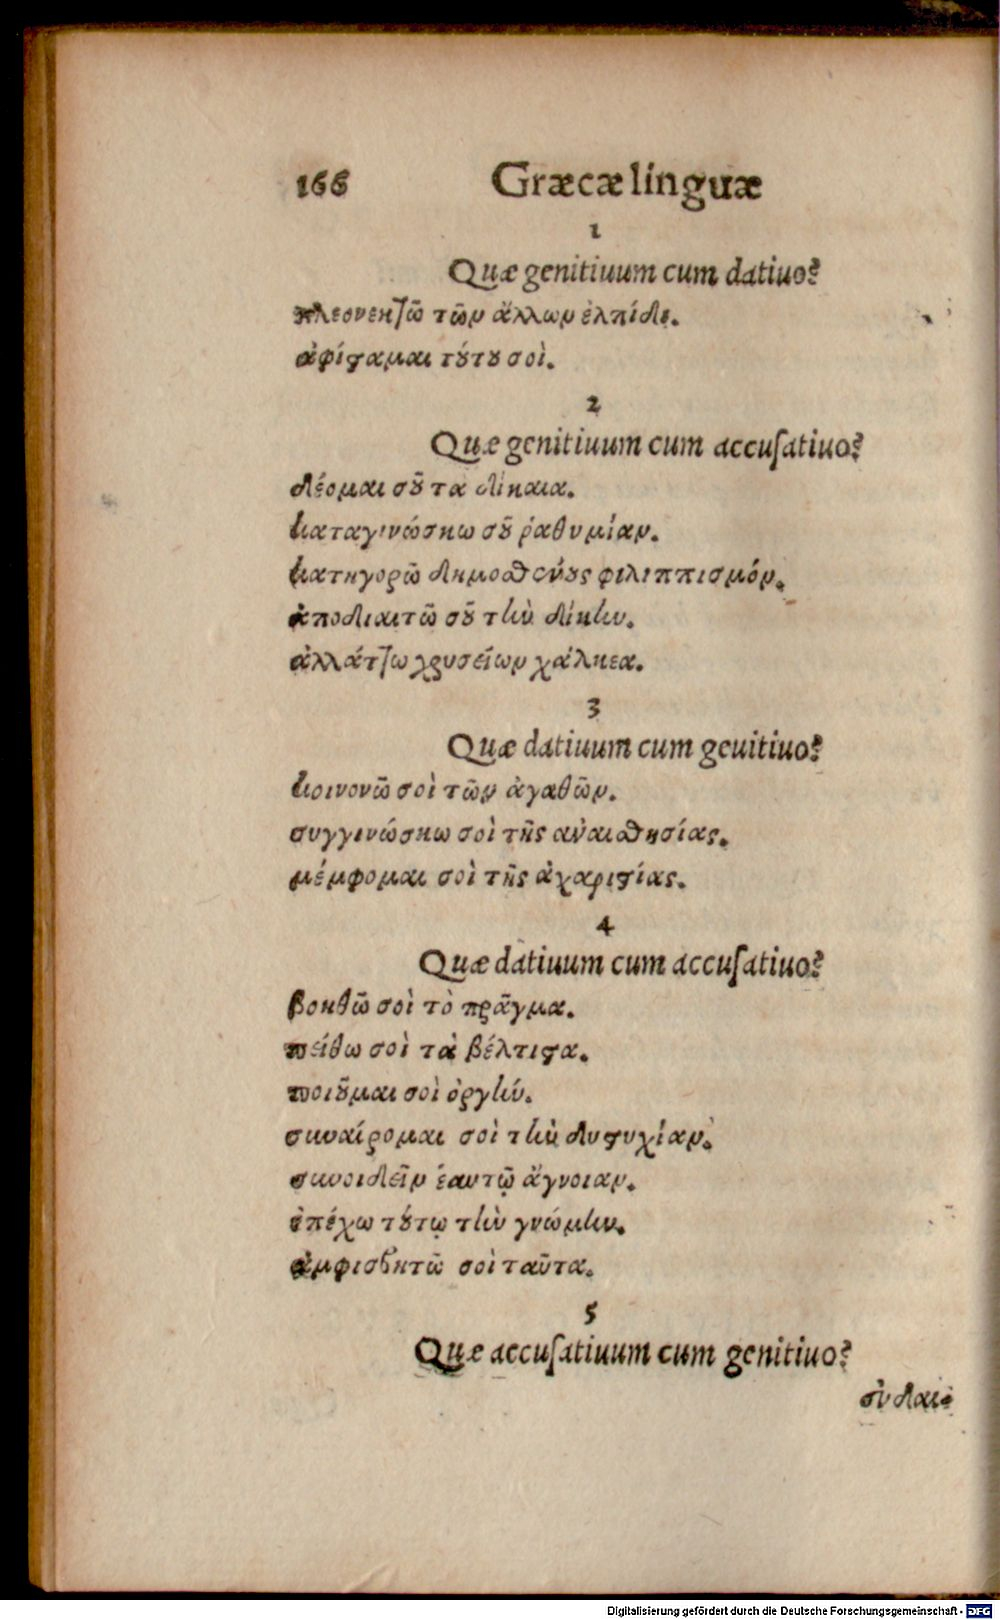 166 Græcæ linguæ
1
Quæ genitiuum cum datiuo?
πλεονεκτῶ τῶν ἄλλων ἐλπίδι.
ἀφίσταμαι τούτου σοὶ.
2
Quæ genitiuum cum accusatiuo?
δέομαι σοῦ τὰ δίκαια.
καταγινώσκω σοῦ ῥαθυμίαν.
κατηγορῶ δημοσθένους φιλιππισμόν.
ἀποδιαιτῶ σοῦ τὴν δίκην.
ἀλλάττω χρυσείων χάλκεα.
3
Quæ datiuum cum geuitiuo?
κοινονῶ σοὶ τῶν ἀγαθῶν.
συγγινώσκω σοὶ τῆς ἀναισθησίας.
μέμφομαι σοὶ τῆς ἀχαριστίας.
4
Quæ datiuum cum accusatiuo?
βοηθῶ σοὶ τὸ πρᾶγμα.
πείθω σοὶ τὰ βέλτιστα.
ποιοῦμαι σοὶ ὀργήν.
συναίρομαι σοὶ τὴν δυστυχίαν.
συνοιδεῖν ἑαυτῷ ἄγνοιαν.
ἐπέχω τούτῳ τὴν γνώμην.
ἀμφισβητῶ σοὶ ταῦτα.
5
Quæ accusatiuum cum genitiuo?
εὐδαι-
Digitalisierung gefördert durch die Deutsche Forschungsgemeinschaft - DFG